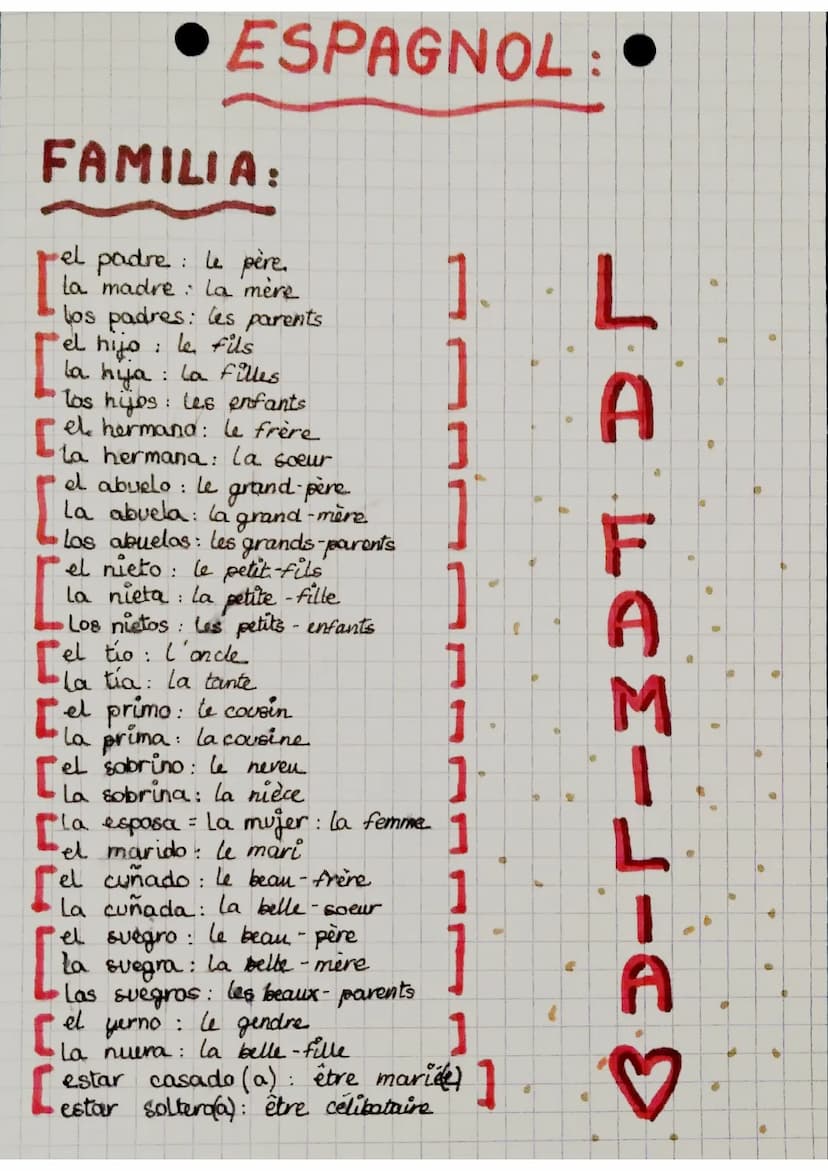 ESPAGNOL :
FAMILIA :
el padre : le père
la madre : la mère
los padres : les parents
el hijo : le fils
la hija : la filles
los hijos : les enfants
el hermano : le frère
la hermana : la soeur
el abuelo : le grand-père
la abuela : la grand-mère
los abuelos : les grands-parents
el nieto : le petit-fils
la nieta : la petite-fille
Los nietos : les petits-enfants
el tío : l'oncle
la tía : la tante
el primo : le cousin
la prima : la cousine
el sobrino : le neveu
la sobrina : la nièce
la esposa = la mujer : la femme
el marido : le mari
el cuñado : le beau-frère
la cuñada : la belle-soeur
el suegro : le beau-père
la suegra : la belle-mère
los suegros : les beaux-parents
el yerno : le gendre
la nuera : la belle-fille
estar casado(a) : être marié(e)
estar soltero(a) : être célibataire
LA FAMILIA